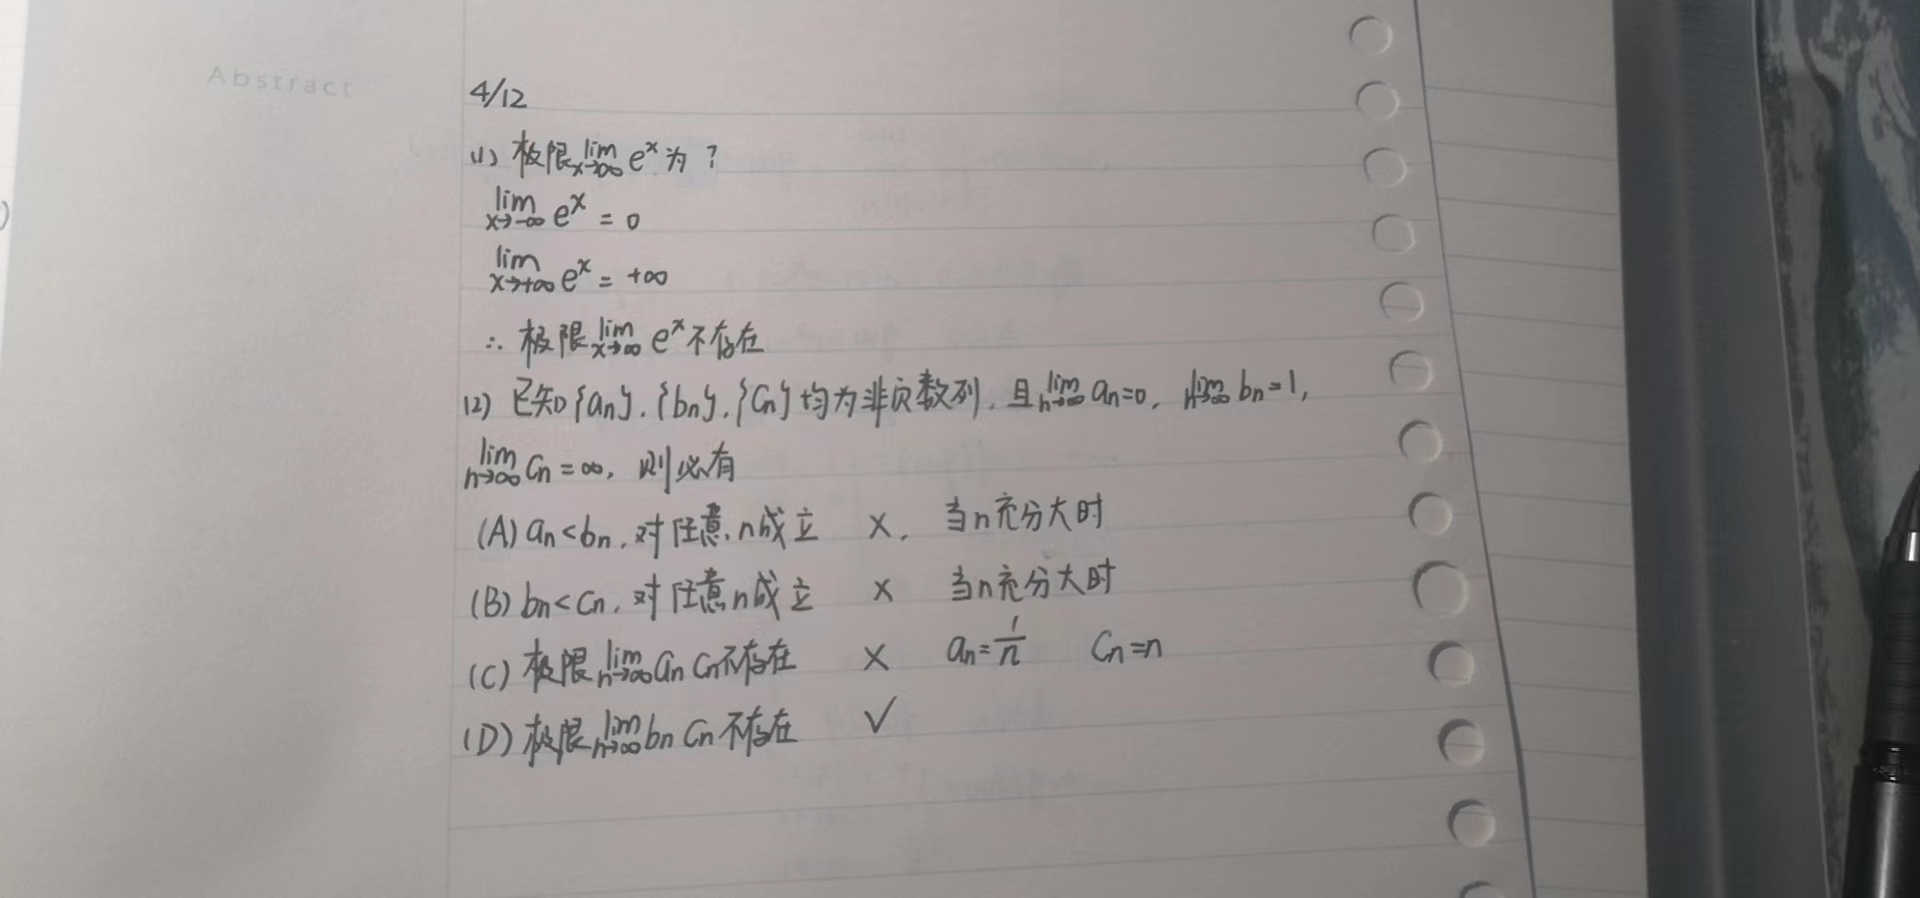 Abstract
4/12
(1) 极限lim x→∞ eˣ为？
lim x→-∞ eˣ = 0
lim x→+∞ eˣ = +∞
∴ 极限lim x→∞ eˣ不存在
(2) 已知{an}, {bn}, {Cn}均为非负数列, 且lim n→∞ an=0, lim n→∞ bn=1,
lim n→∞ Cn=∞, 则必有
(A) an<bn, 对任意n成立 ×, 当n充分大时
(B) bn<Cn, 对任意n成立 × 当n充分大时
(C) 极限lim n→∞ an Cn不存在 × an=1/n Cn=n
(D) 极限lim n→∞ bn Cn不存在 ✓